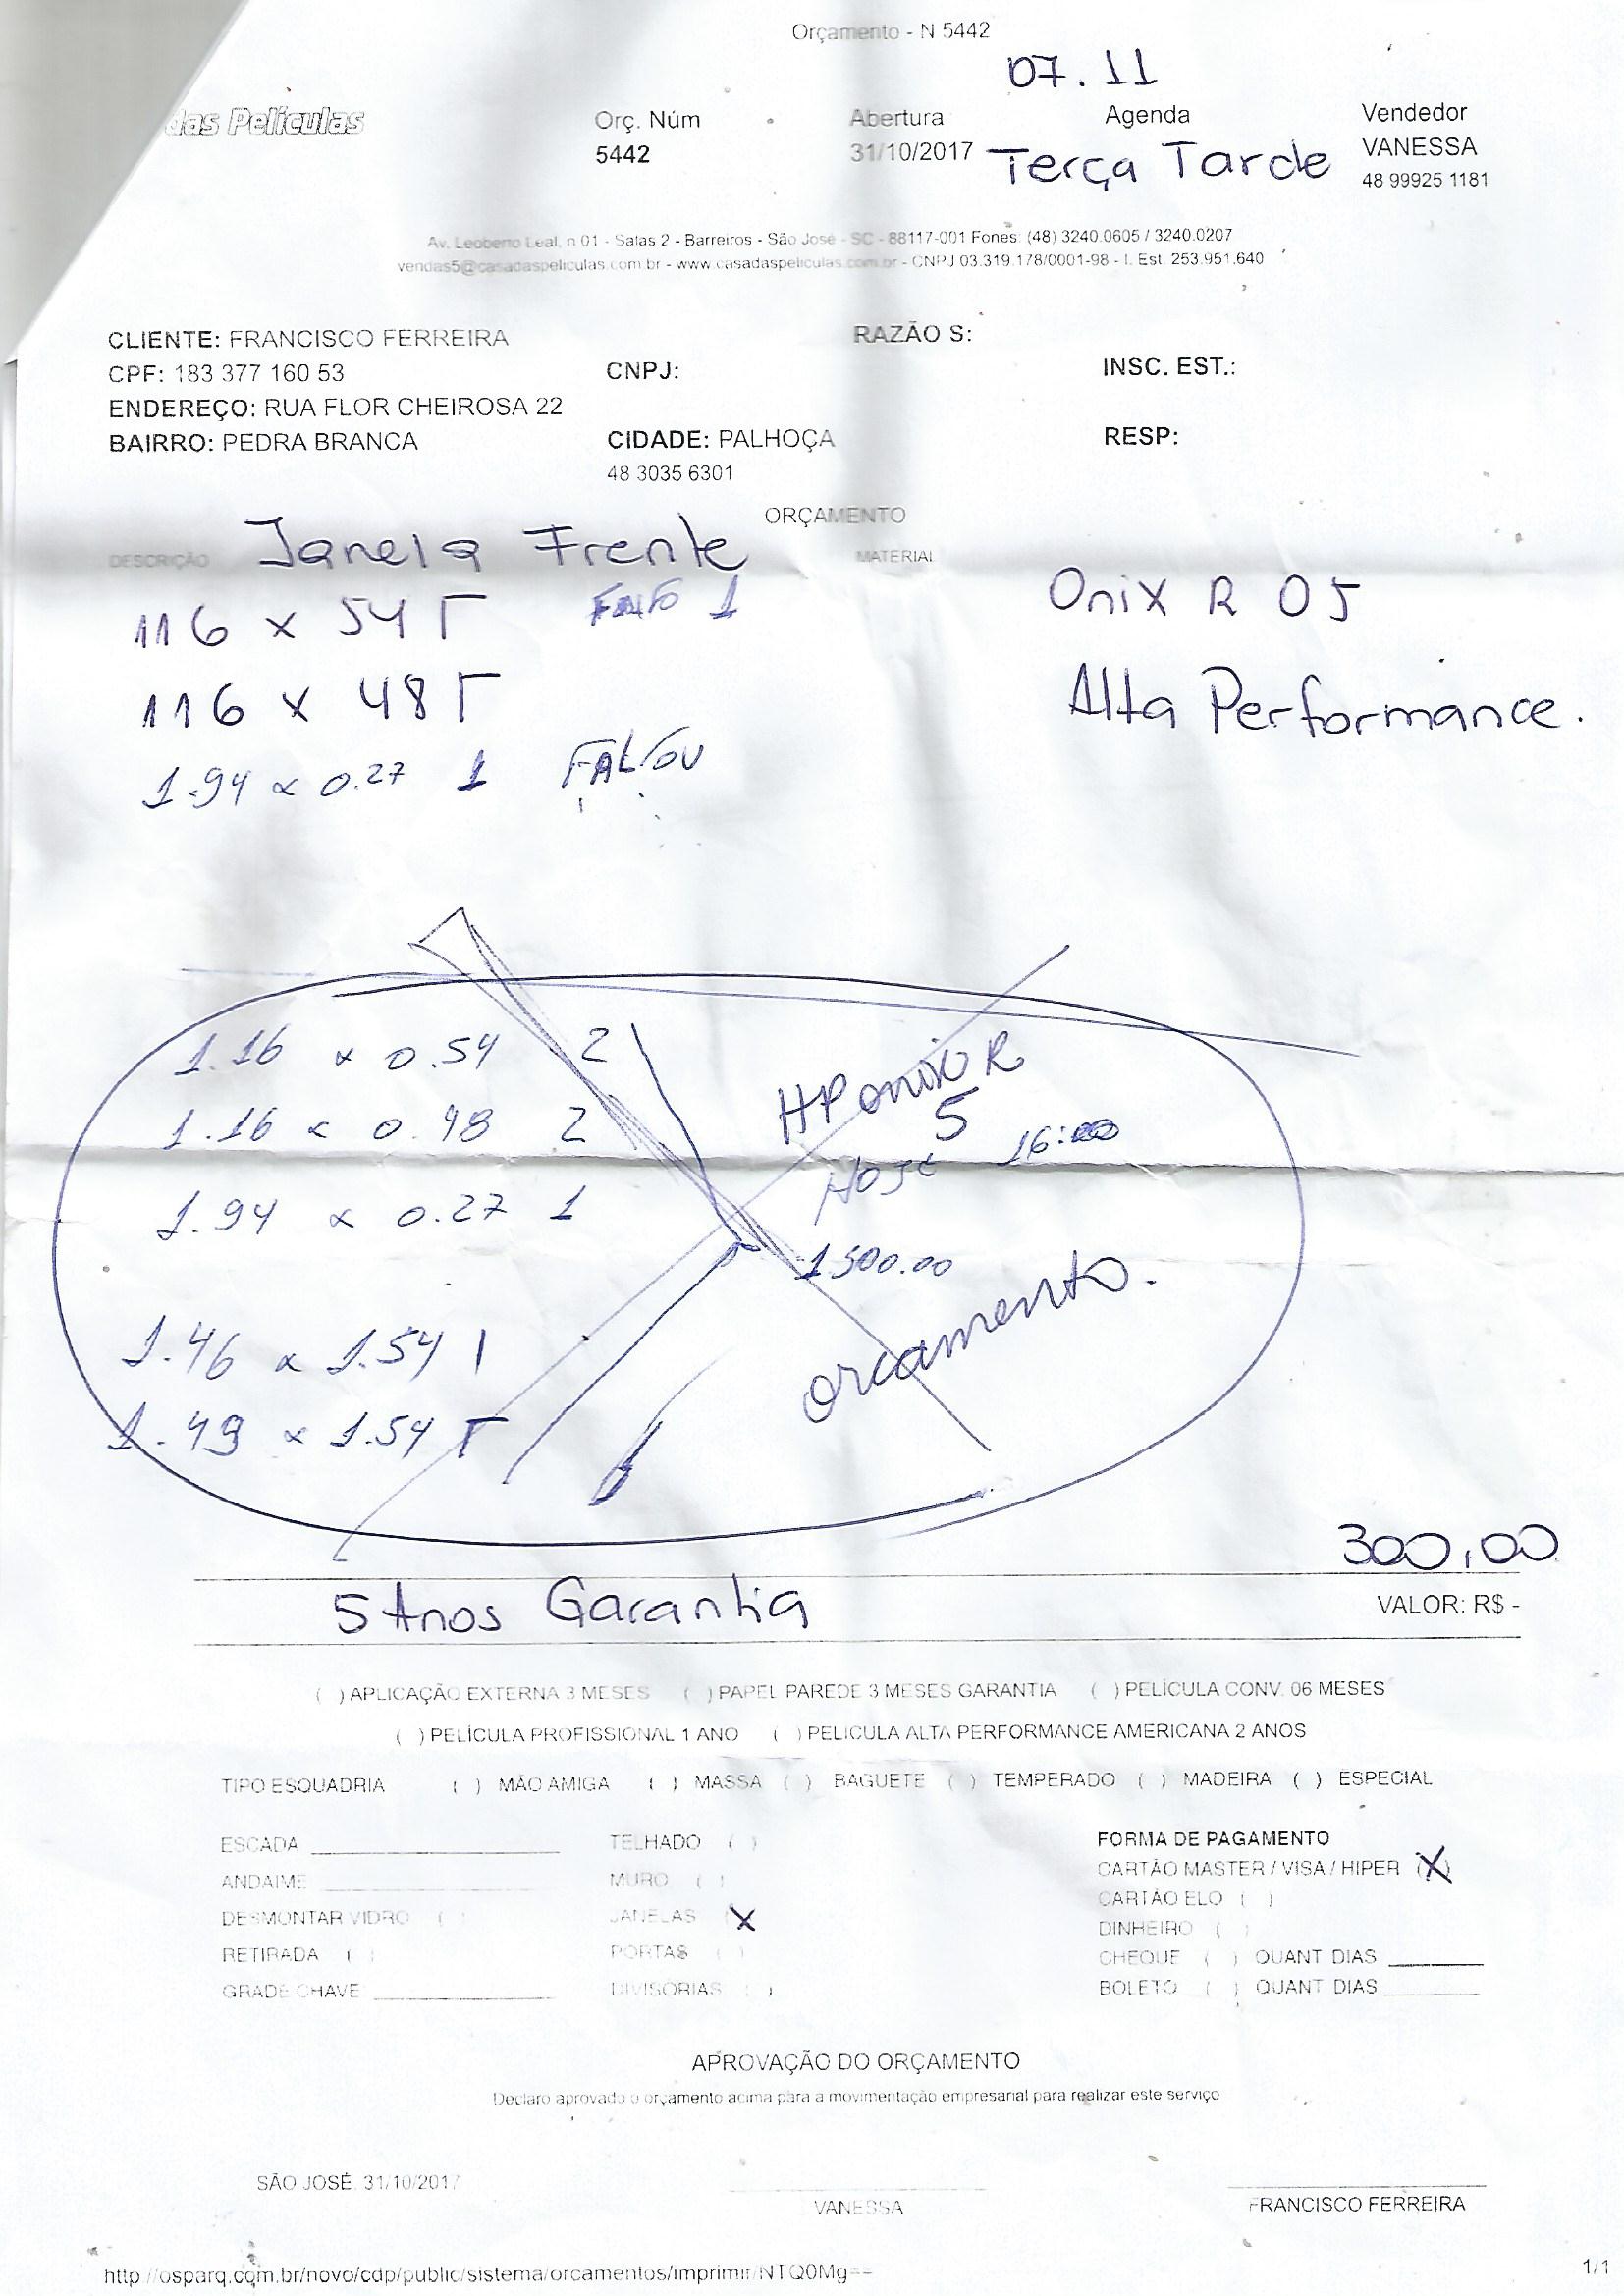 Orçamento - N 5442
07.11
das Películas
Orç. Núm
5442
Abertura
31/10/2017
Agenda
Terça Tarde
Vendedor
VANESSA
48 99925 1181
Av. Leoberto Leal, n 01 - Salas 2 - Barreiros - São José - SC - 88117-001 Fones: (48) 3240.0605 / 3240.0207
vendas5@casadaspeliculas.com.br - www.casadaspeliculas.com.br - CNPJ 03.319.178/0001-98 - I. Est. 253.951.640
CLIENTE: FRANCISCO FERREIRA
RAZÃO S:
CPF: 183 377 160 53
CNPJ:
INSC. EST.:
ENDEREÇO: RUA FLOR CHEIROSA 22
BAIRRO: PEDRA BRANCA
CIDADE: PALHOÇA
RESP:
48 3035 6301
ORÇAMENTO
DESCRIÇÃO
Janela Frente
MATERIAL
116 x 54 1
Onix R 05
116 x 48
Alta Performance.
1.94 x 0.27 1 FALTOU
1.16 x 0.54 2
HP onix R
5
1.16 x 0.48 2
HOJE 16:00
1.94 x 0.27 1
1.500.00
orcamento.
1.46 x 1.54 1
1.49 x 1.54
300,00
5 Anos Garantia
VALOR: R$ -
( ) APLICAÇÃO EXTERNA 3 MESES ( ) PAPEL PAREDE 3 MESES GARANTIA ( ) PELÍCULA CONV. 06 MESES
( ) PELÍCULA PROFISSIONAL 1 ANO ( ) PELICULA ALTA PERFORMANCE AMERICANA 2 ANOS
TIPO ESQUADRIA ( ) MÃO AMIGA ( ) MASSA ( ) BAGUETE ( ) TEMPERADO ( ) MADEIRA ( ) ESPECIAL
ESCADA
TELHADO ( )
FORMA DE PAGAMENTO
ANDAIME
MURO ( )
CARTÃO MASTER / VISA / HIPER (X)
DESMONTAR VIDRO ( )
JANELAS (X)
CARTÃO ELO ( )
DINHEIRO ( )
RETIRADA ( )
PORTAS ( )
CHEQUE ( ) QUANT DIAS
GRADE CHAVE
DIVISORIAS ( )
BOLETO ( ) QUANT DIAS
APROVAÇÃO DO ORÇAMENTO
Declaro aprovado o orçamento acima para a movimentação empresarial para realizar este serviço
SÃO JOSÉ, 31/10/2017
VANESSA
FRANCISCO FERREIRA
http://osparq.com.br/novo/cdp/public/sistema/orcamentos/imprimir/NTQ0Mg==
1/1